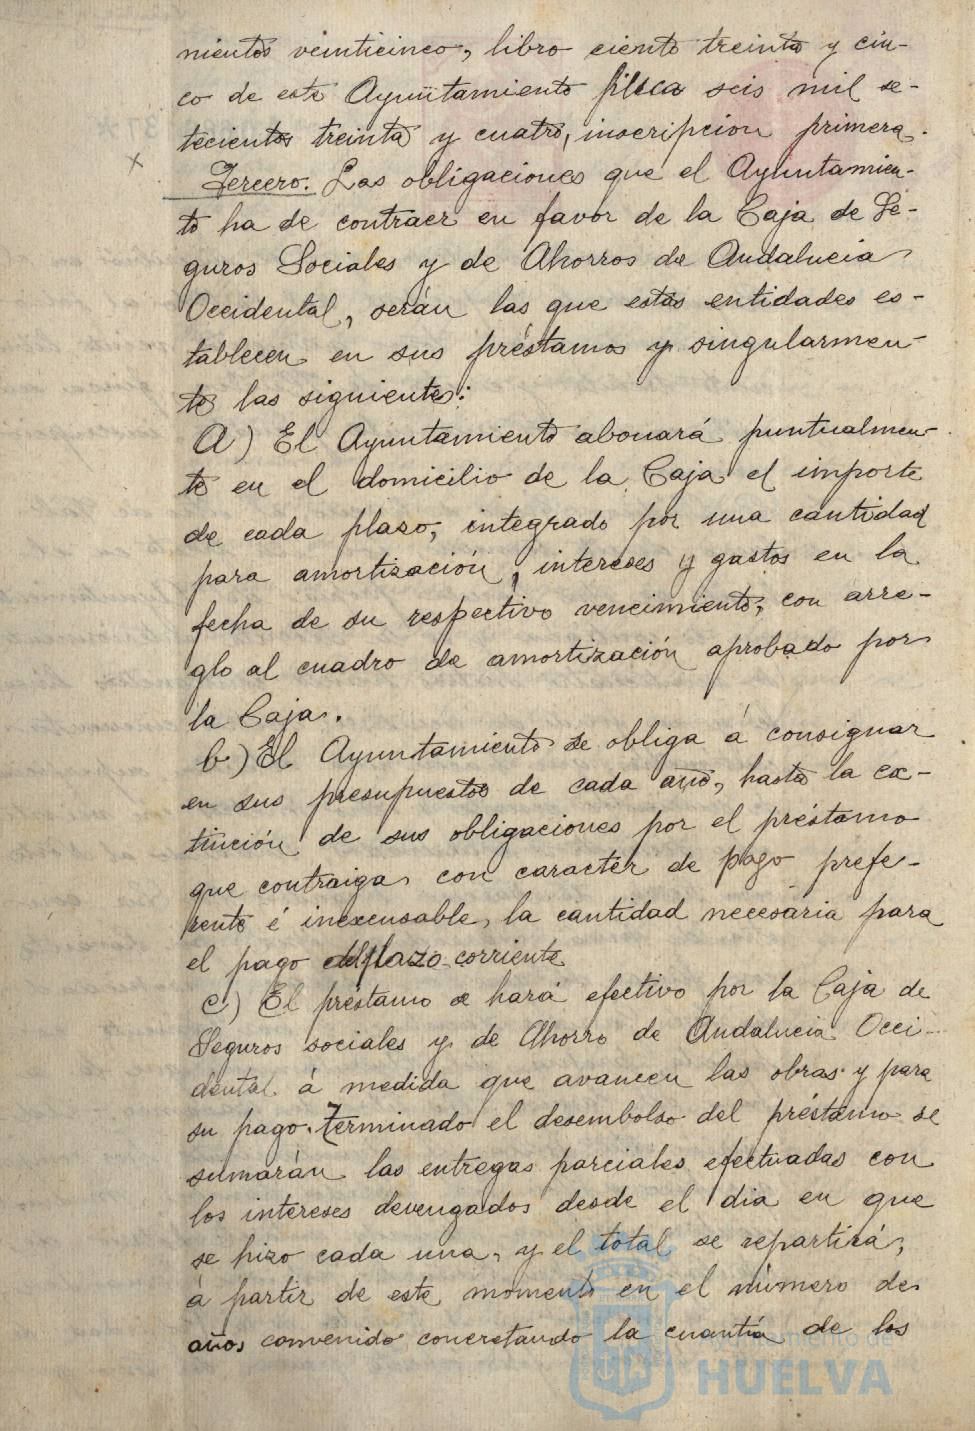 nientos veinticinco, libro ciento treinta y cin-
co de este Ayuntamiento finca seis mil se-
tecientos treinta y cuatro, inscripcion primera.
Tercero. Las obligaciones que el Ayuntamien-
to ha de contraer en favor de la Caja de Se-
guros Sociales y de Ahorros de Andalucia
Occidental, serán las que estas entidades es-
tablecen en sus préstamos y singularmen-
te las siguientes:
A) El Ayuntamiento abonará puntualmen-
te en el domicilio de la Caja el importe
de cada plaso, integrado por una cantidad
para amortización, intereses y gastos en la
fecha de su respectivo vencimiento, con arre-
glo al cuadro de amortización aprobado por
la Caja.
b) El Ayuntamiento se obliga á consignar
en sus presupuestos de cada año, hasta la ex-
tinción de sus obligaciones por el préstamo
que contraiga con caracter de pago prefe-
rente é inexcusable, la cantidad necesaria para
el pago del plazo corriente
c) El préstamo se hará efectivo por la Caja de
Seguros sociales y de Ahorro de Andalucia Occi-
dental á medida que avancen las obras y para
su pago. Terminado el desembolso del préstamo se
sumarán las entregas parciales efectuadas con
los intereses devengados desde el dia en que
se hizo cada una, y el total se repartirá,
á partir de este momento en el número de
años convenido concretando la cuantía de los
Ayuntamiento de
HUELVA